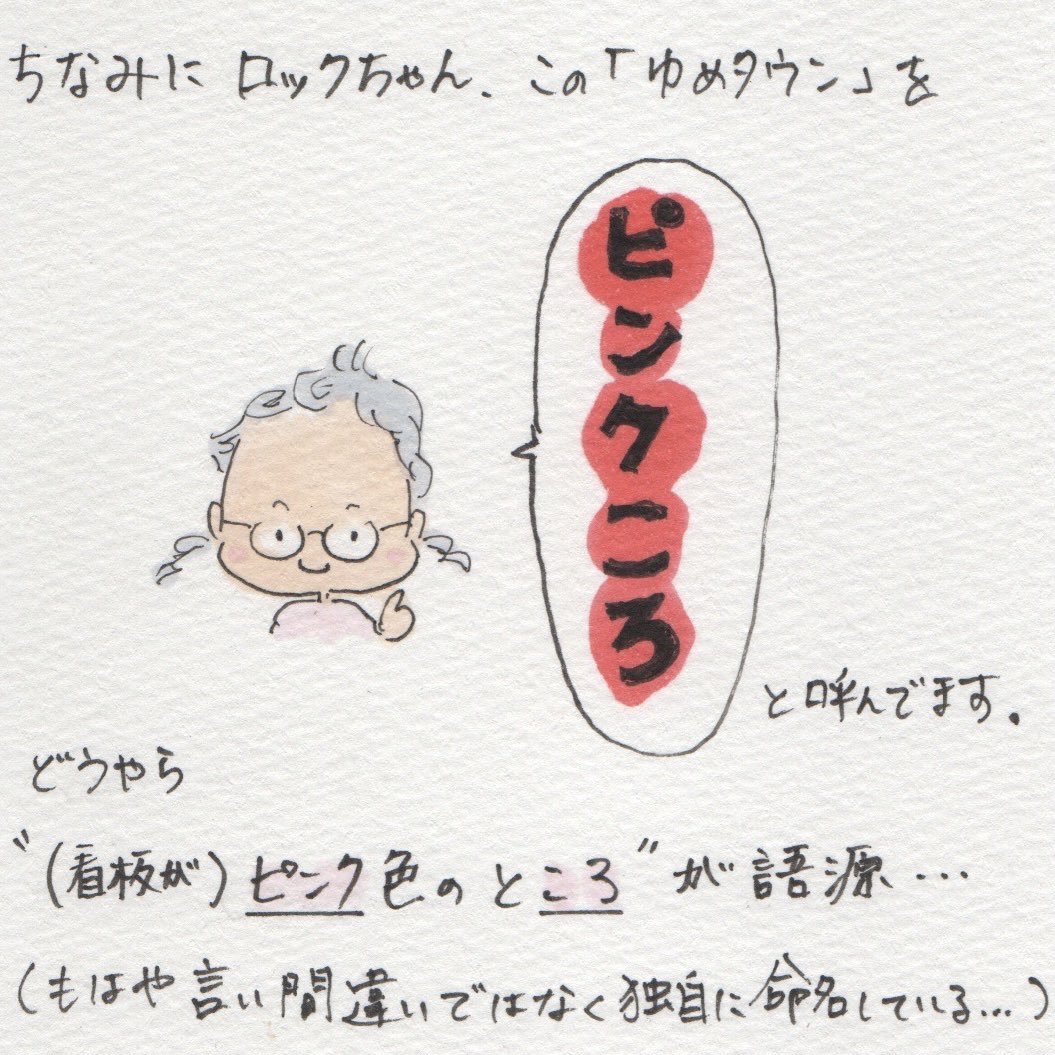 ちなみに ロックちゃん、この「ゆめタウン」を
ピンクころ
と呼んでます。
どうやら
〝(看板が)ピンク色のところ〟が語源…
(もはや言い間違いではなく独自に命名している…)